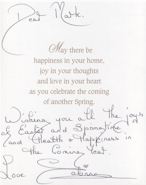 Dear Mark.
May there be
happiness in your home,
joy in your thoughts
and love in your heart
as you celebrate the coming
of another Spring.
Wishing you all the joys
of Easter and Springtime
and Health & Happiness in
the Coming Year
Love